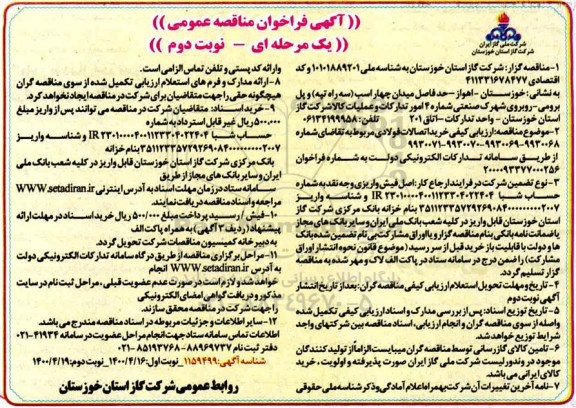 (( آگهی فراخوان مناقصه عمومی ))
(( یک مرحله ای – نوبت دوم ))
شرکت ملی گاز ایران
شرکت گاز استان خوزستان
۱-مناقصه گزار: شرکت گاز استان خوزستان به شناسه ملی ۱۰۱۰۱۸۸۹۲۰۱ و کد
اقتصادی ۴۱۱۳۳۱۶۷۸۴۷۷
به نشانی: خوزستان – اهواز – حد فاصل میدان چهار اسب (سه راه تپه) و پل
برومی- روبروی شهرک صنعتی شماره ۴ امور تدارکات و عملیات کالا شرکت گاز
استان خوزستان - واحد تدارکات – اتاق ۲۰۱ تلفن: ۰۶۱۳۴۱۹۹۹۵۸
۲-موضوع مناقصه: ارزیابی کیفی خرید اتصالات فولادی مربوط به تقاضای شماره
۹۹۳۰۰۷۱-۹۹۳۰۰۷۰-۹۹۳۰۰۶۹-۹۹۳۰۰۶۸
از طریق سامانه تدارکات الکترونیکی دولت به شماره فراخوان
۲۰۰۰۰۹۳۳۷۷۰۰۰۲۵۶
۳-نوع تضمین شرکت در فرایند ارجاع کار: اصل فیش واریزی وجه نقد به شماره
حساب شبا IR ۲۳۰۱۰۰۰۰۴۰۰۱۱۲۳۳۰۴۰۲۲۴۰۴ و شناسه واریز
۳۵۱۱۲۳۳۵۷۲۹۲۶۹۰۸۴۰۰۰۰۰۰۰۰۰۰۰۲۰۰۷ بنام خزانه بانک مرکزی شرکت گاز
استان خوزستان قابل واریز در کلیه شعب بانک ملی ایران و سایر بانک های مجاز
یا ضمانت نامه بانکی بنام مناقصه گزار و یا اوراق مشارکت بی نام تضمین شده بانک
ها و دولت با قابلیت باز خرید قبل از سر رسید (موضوع قانون نحوه انتشار اوراق
مشارکت) را ضمن درج در سامانه ستاد در پاکت الف لاک و مهر شده به مناقصه
گزار تسلیم گردد.
۴- تاریخ و مهلت تحویل استعلام ارزیابی کیفی مناقصه گران: بعد از تاریخ انتشار
آگهی نوبت دوم
۵- تاریخ توزیع اسناد: پس از بررسی مدارک و اسناد ارزیابی کیفی تکمیل شده
واصله از سوی مناقصه گران و انجام ارزیابی، اسناد مناقصه بین شرکتهای واجد
شرایط توزیع خواهد شد.
۶- تامین کالای گازرسانی توسط مناقصه گران میبایست الزاماً از تولید کنندگان
موجود در وندور لیست شرکت ملی گاز ایران صورت پذیرفته و اولویت، خرید
کالای ایرانی می باشد.
۷- نامه آخرین تغییرات آن شرکت بهمراه اعلام آمادگی و ذکر شناسه ملی حقوقی
وارائه کد پستی و تلفن تماس الزامی است.
۸-ارائه مدارک و فرم های استعلام ارزیابی تکمیل شده از سوی مناقصه گران
هیچگونه حقی را جهت متقاضیان برای شرکت در مناقصه ایجاد نخواهد کرد.
۹-خرید اسناد: متقاضیان شرکت در مناقصه می توانند پس از واریز مبلغ
۵۰۰.۰۰۰ ریال غیر قابل استرداد به شماره
حساب شبا IR ۲۳۰۱۰۰۰۰۴۰۰۱۱۲۳۳۰۴۰۲۲۴۰۴ و شناسه واریز
۳۵۱۱۲۳۳۵۷۲۹۲۶۹۰۸۴۰۰۰۰۰۰۰۰۰۰۰۲۰۰۷ بنام خزانه
بانک مرکزی شرکت گاز استان خوزستان قابل واریز در کلیه شعب بانک ملی
ایران و سایر بانک های مجاز از طریق
سامانه ستاد در زمان مهلت اسناد به آدرس اینترنتی WWW.setadiran.ir
مراجعه و اسناد مناقصه دریافت نمایند.
۱۰-فیش / رسید پرداخت مبلغ ۵۰۰/۰۰۰ ریال خرید اسناد در مهلت ارائه
پیشنهاد (ردیف ۳ آگهی) به همراه پاکت الف
به دبیرخانه کمیسیون مناقصات شرکت تحویل گردد.
۱۱-مراحل برگزاری مناقصه از طریق درگاه سامانه تدارکات الکترونیکی دولت
به آدرس WWW.setadiran.ir انجام
خواهد شد و لازم است در صورت عدم عضویت قبلی، مراحل ثبت نام در سایت
مذکور و دریافت گواهی امضای الکترونیکی
را جهت شرکت در مناقصه محقق سازند.
۱۲- سایر اطلاعات و جزئیات مربوطه در اسناد مناقصه مندرج می باشد.
اطلاعات تماس سامانه ستاد جهت انجام مراحل عضویت در سامانه ۴۱۹۳۴-۰۲۱
دفتر ثبت نام ۸۸۹۶۹۷۳۷-۸۵۱۹۳۷۶۸-۰۲۱
شناسه آگهی: ۱۱۵۹۴۹۹ _نوبت اول: ۱۴۰۰/۴/۱۶_نوبت دوم: ۱۴۰۰/۴/۱۹
روابط عمومی شرکت گاز استان خوزستان